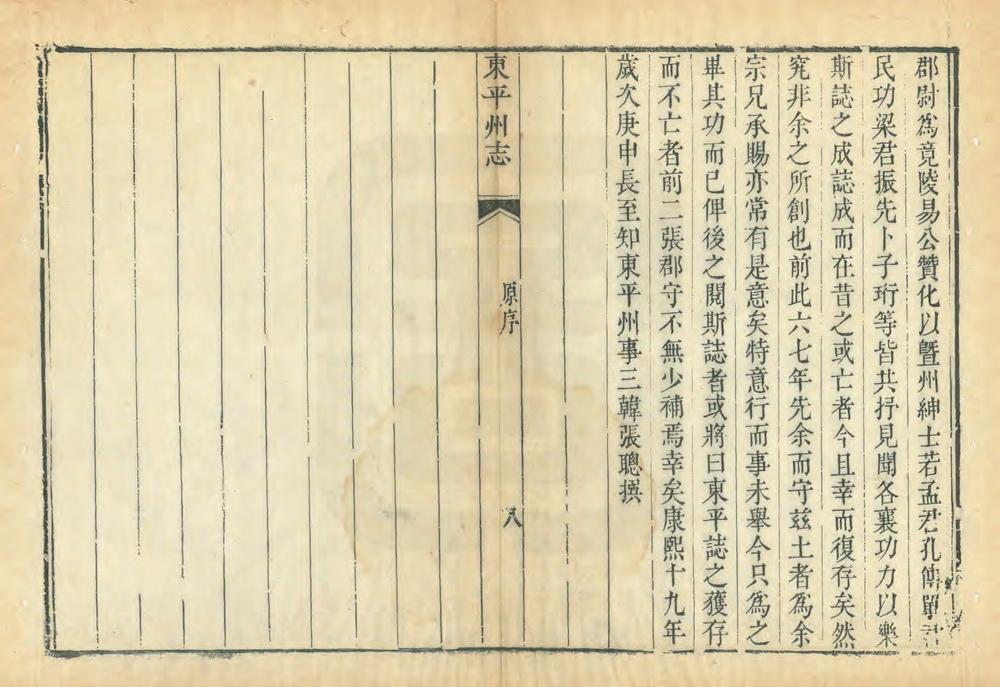 郡尉爲竟陵易公贊化以曁州紳士若孟君孔傳單君
民功梁君振先卜子珩等皆共抒見聞各襄功力以樂
斯誌之成誌成而在昔之或亡者今且幸而復存矣然
究非余之所創也前此六七年先余而守兹土者爲余
宗兄承賜亦常有是意矣特意行而事未舉今只爲之
畢其功而已俾後之閱斯誌者或將曰東平誌之獲存
而不亡者前二張郡守不無少補焉幸矣康熙十九年
歲次庚申長至知東平州事三韓張聰撰
東平州志
原序
八